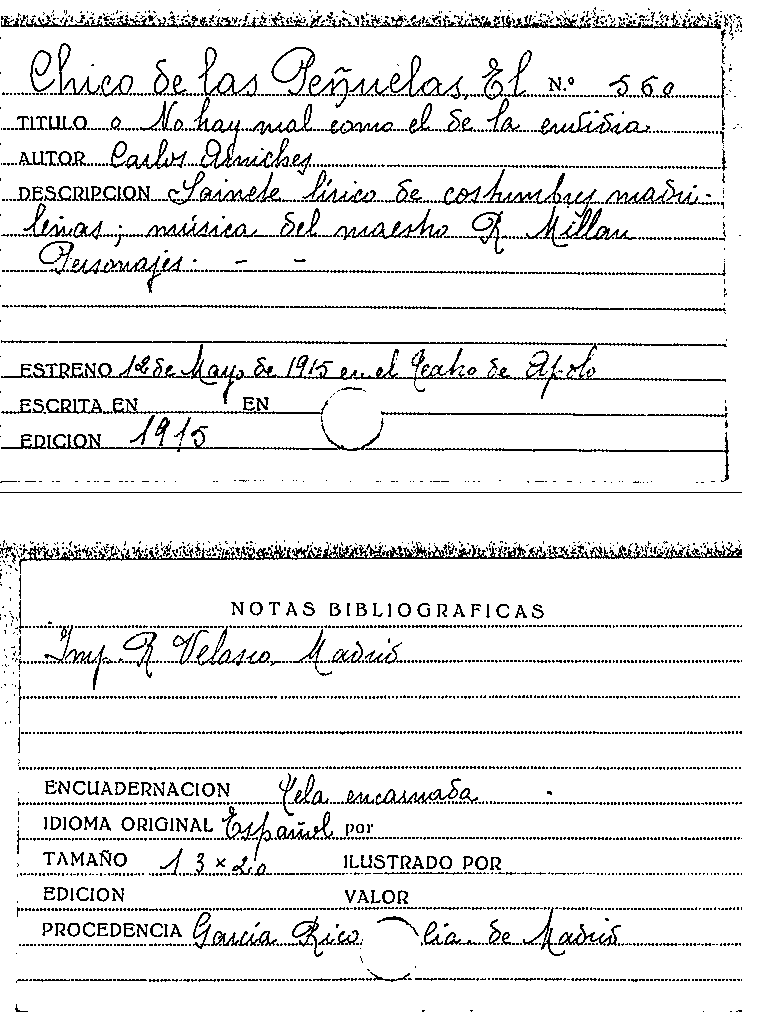 Chico de las Peñuelas, El N.º 560
TITULO o No hay mal como el de la envidia
AUTOR Carlos Arniches
DESCRIPCION Sainete lírico de costumbres madri-
leñas; música del maestro R. Millan
Personajes. - -
ESTRENO 12 de Mayo de 1915 en el Teatro de Apolo
ESCRITA EN EN
EDICION 1915
NOTAS BIBLIOGRAFICAS
Imp. R Velasco, Madrid
ENCUADERNACION Tela encarnada
IDIOMA ORIGINAL Español por
TAMAÑO 13 x 20 ILUSTRADO POR
EDICION VALOR
PROCEDENCIA García Rico Cia. de Madrid